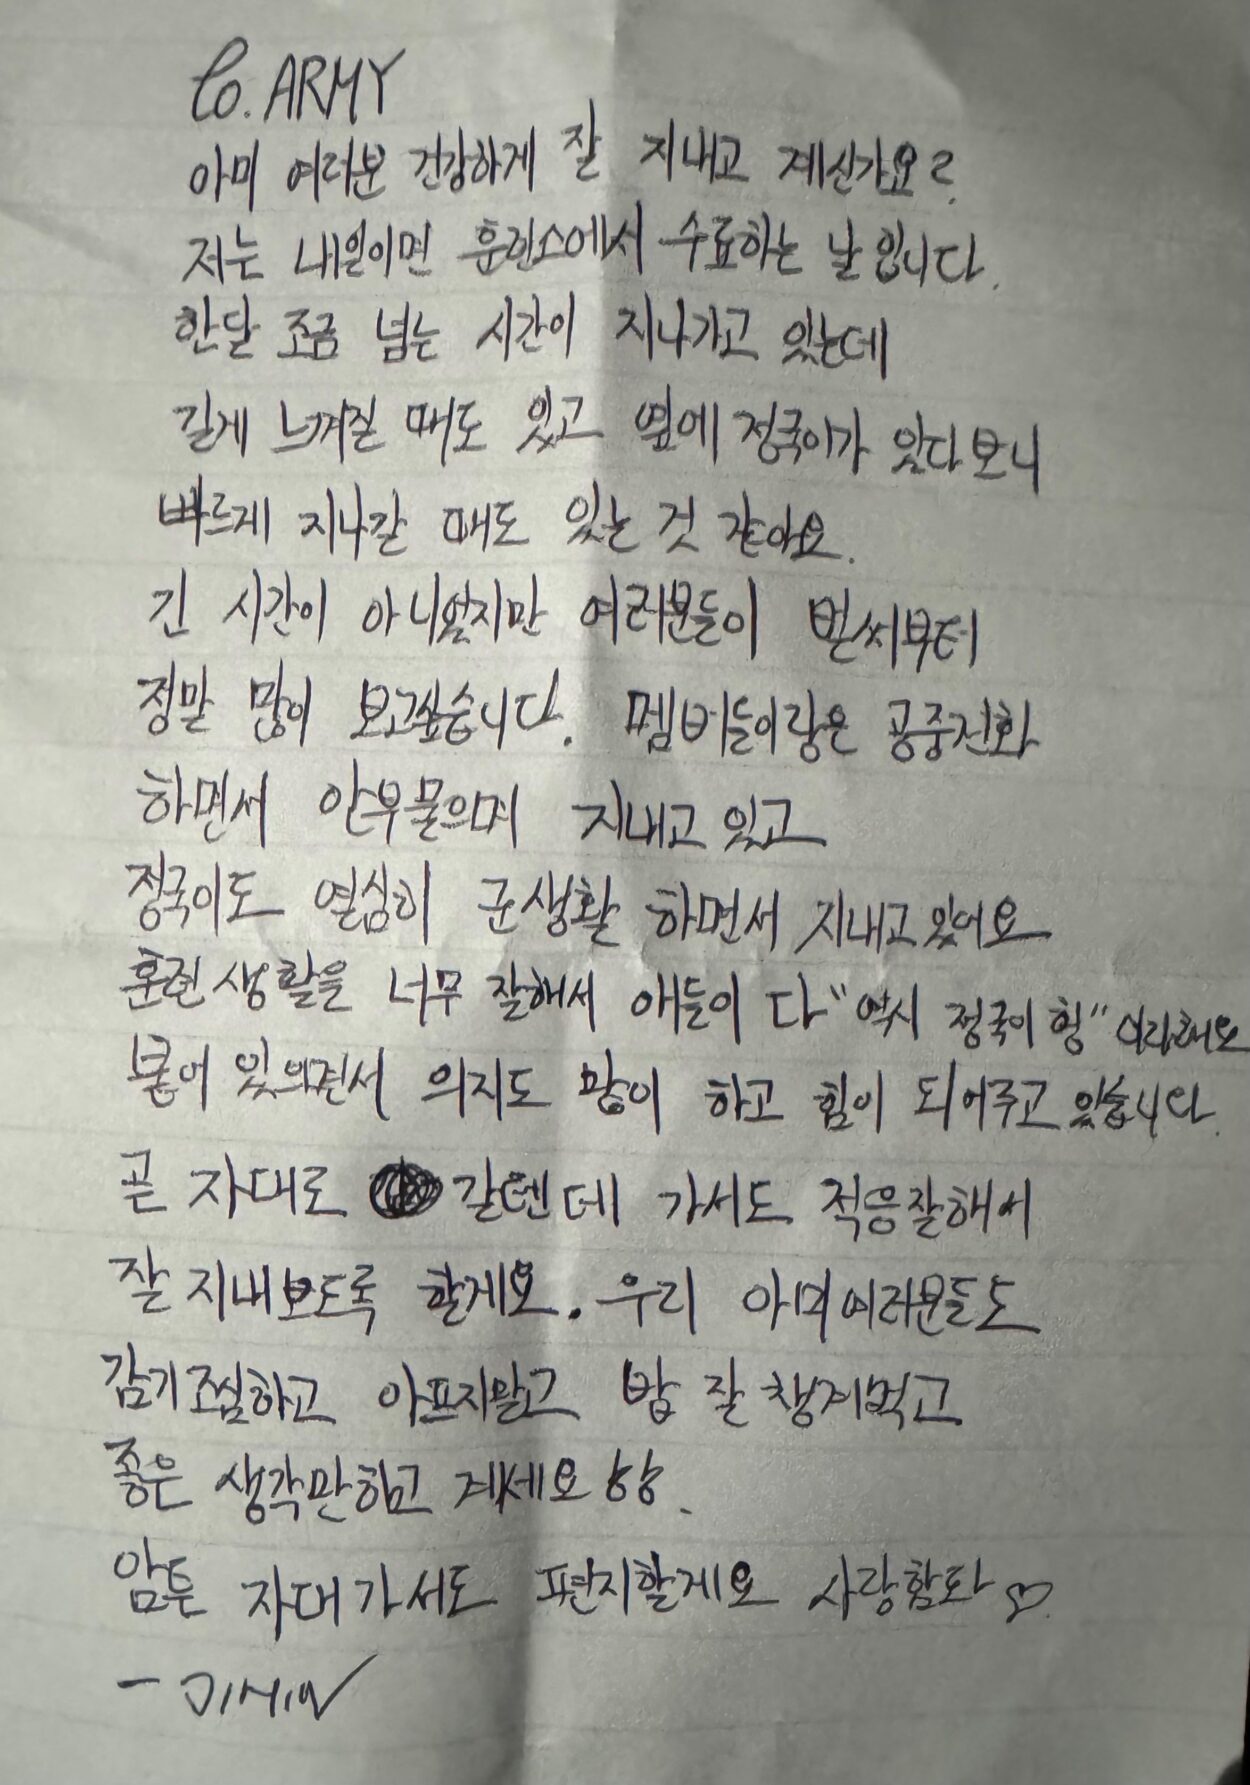 To. ARMY
아미 여러분 건강하게 잘 지내고 계신가요?
저는 내일이면 훈련소에서 수료하는 날입니다.
한달 조금 넘는 시간이 지나가고 있는데
길게 느껴질 때도 있고 옆에 정국이가 있다보니
빠르게 지나갈 때도 있는 것 같아요.
긴 시간이 아니였지만 여러분들이 벌써부터
정말 많이 보고싶습니다. 멤버들이랑은 공중전화
하면서 안부물으며 지내고 있고
정국이도 열심히 군생활 하면서 지내고있어요
훈련생활을 너무 잘해서 애들이 다 "역시 정국이 형" 이라해요
붙어 있으면서 의지도 많이 하고 힘이 되어주고 있습니다.
곧 자대로 갈텐데 가서도 적응잘해서
잘 지내보도록 할게요. 우리 아미여러분들도
감기조심하고 아프지말고 밥 잘 챙겨먹고
좋은 생각만하고 계세요
암튼 자대가서도 편지할게요 사랑함다 ♡.
- JIMIN